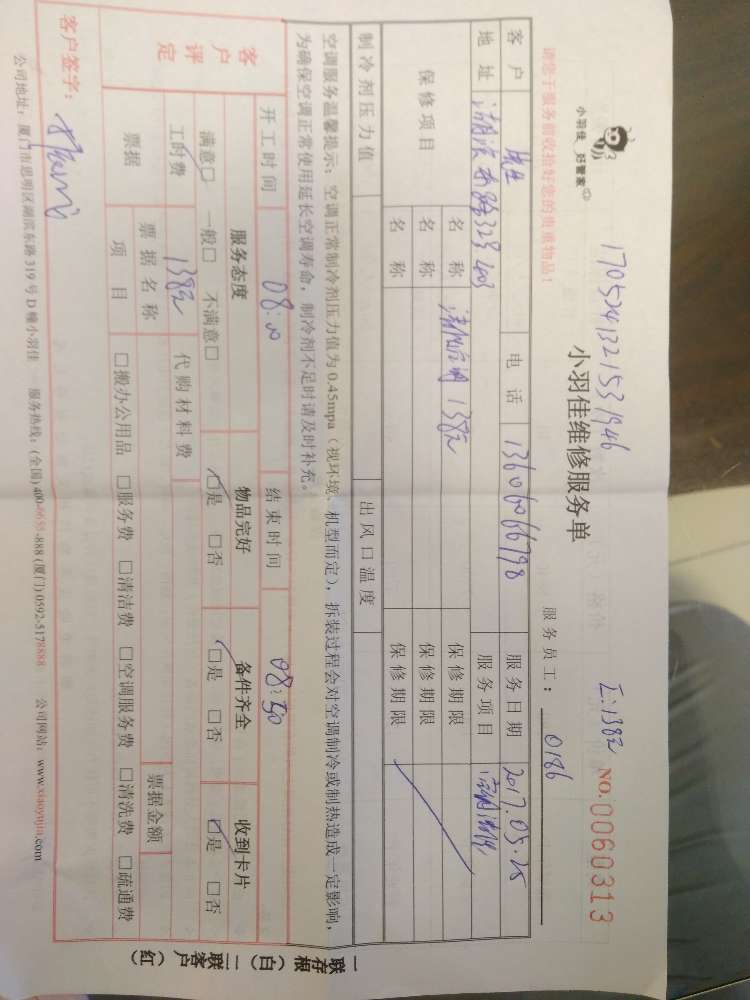 小羽佳 好管家
1705241321531946
工:138元
小羽佳维修服务单
NO.:0060313
请您于服务前收拾好您的贵重物品！
服务员工：0186
客户 先生 电话 13606066798 服务日期 2017.05.25
地址 湖滨东路323 403 服务项目 空调清洗
保修项目 名称 清洗空调 138元 保修期限
名称 保修期限
名称 保修期限
制冷剂压力值 出风口温度
空调服务温馨提示：空调正常制冷剂压力值为0.45mpa（视环境、机型而定），拆装过程会对空调制冷或制热造成一定影响，
为确保空调正常使用延长空调寿命，制冷剂不足时请及时补充。
开工时间 08:00 结束时间 08:50
客户评定 服务态度 物品完好 备件齐全 收到卡片
满意□ 一般□ 不满意□ □是 □否 □是 □否 □是 □否
工时费 138元 代购材料费
票据 票据名称 票据金额
项目 □搬办公用品 □服务费 □清洁费 □空调服务费 □清洗费 □疏通费
客户签字：
公司地址：厦门市思明区湖滨东路319号D幢小羽佳 服务热线：(全国)400-6655-888 (厦门)0592-5178888 公司网站：www.xiaoyujia.com
一联存根（白）二联客户（红）